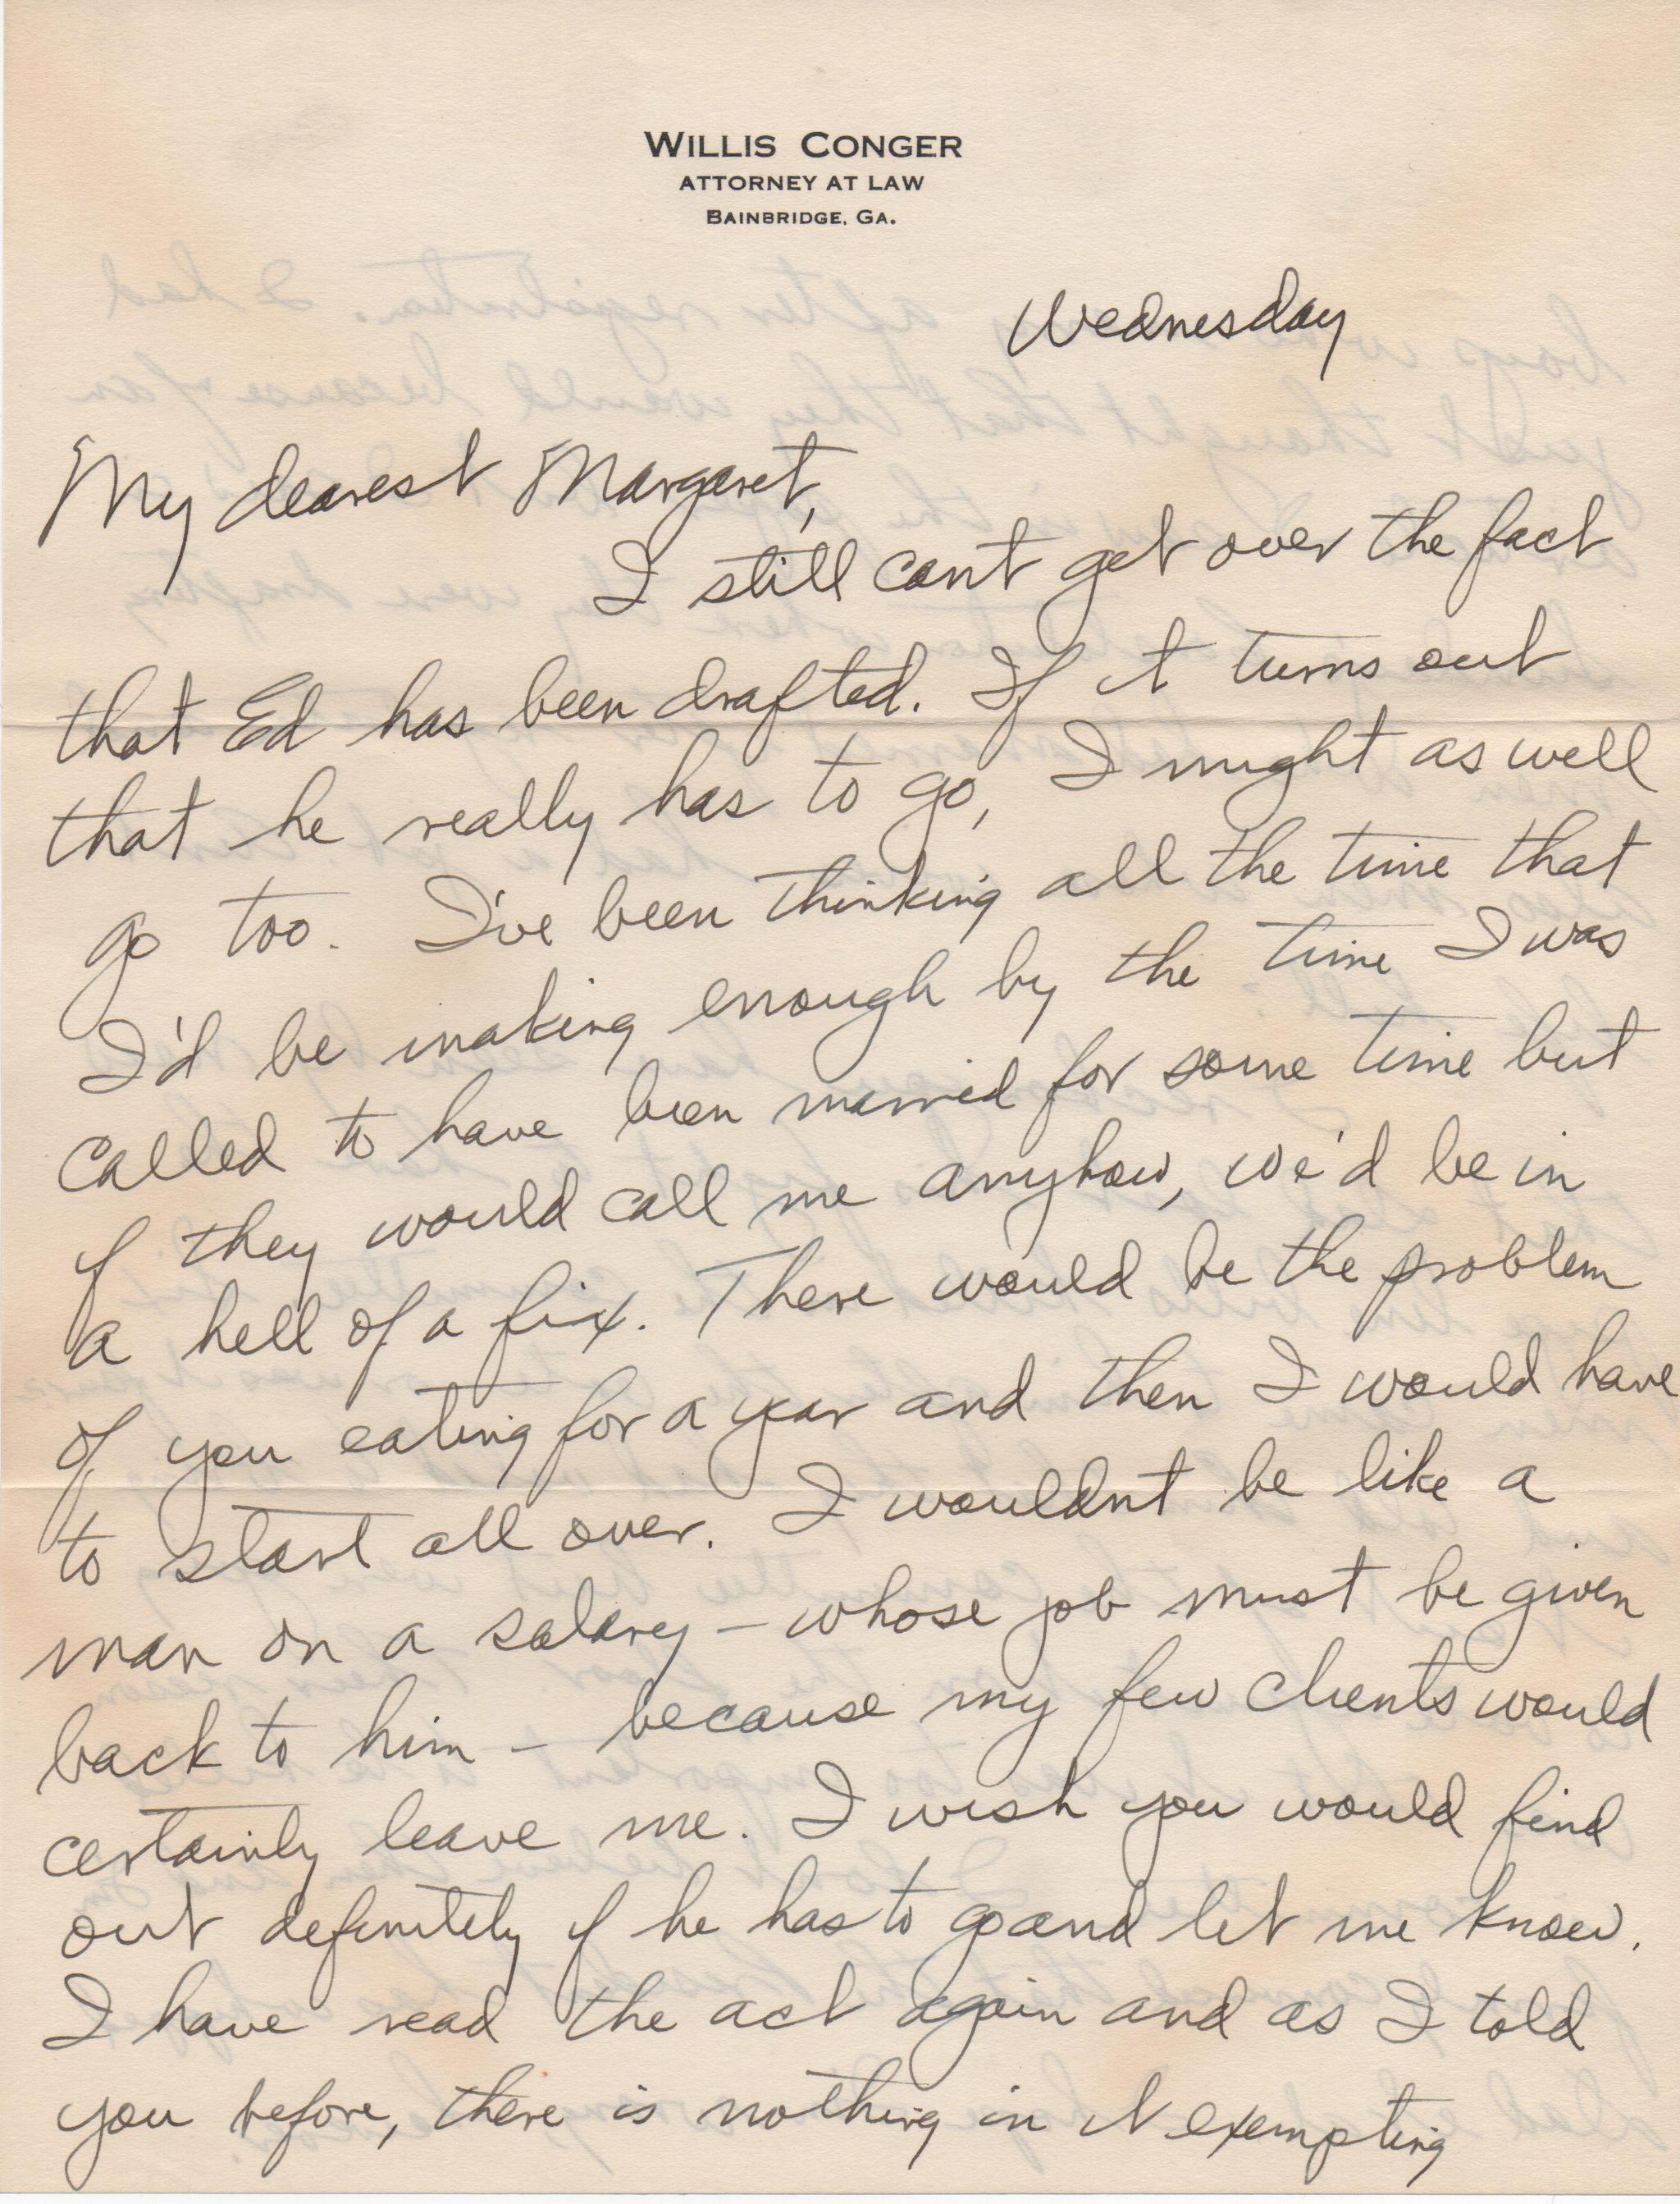 WILLIS CONGER
ATTORNEY AT LAW
BAINBRIDGE, GA.
Wednesday
My dearest Margaret,
I still can't get over the fact
that Ed has been drafted. If it turns out
that he really has to go, I might as well
go too. I've been thinking all the time that
I'd be making enough by the time I was
called to have been married for some time but
if they would call me anyhow, we'd be in
a hell of a fix. There would be the problem
of you eating for a year and then I would have
to start all over. I wouldn't be like a
man on a salary – whose job must be given
back to him – because my few clients would
certainly leave me. I wish you would find
out definitely if he has to go and let me know.
I have read the act again and as I told
you before, there is nothing in it exempting